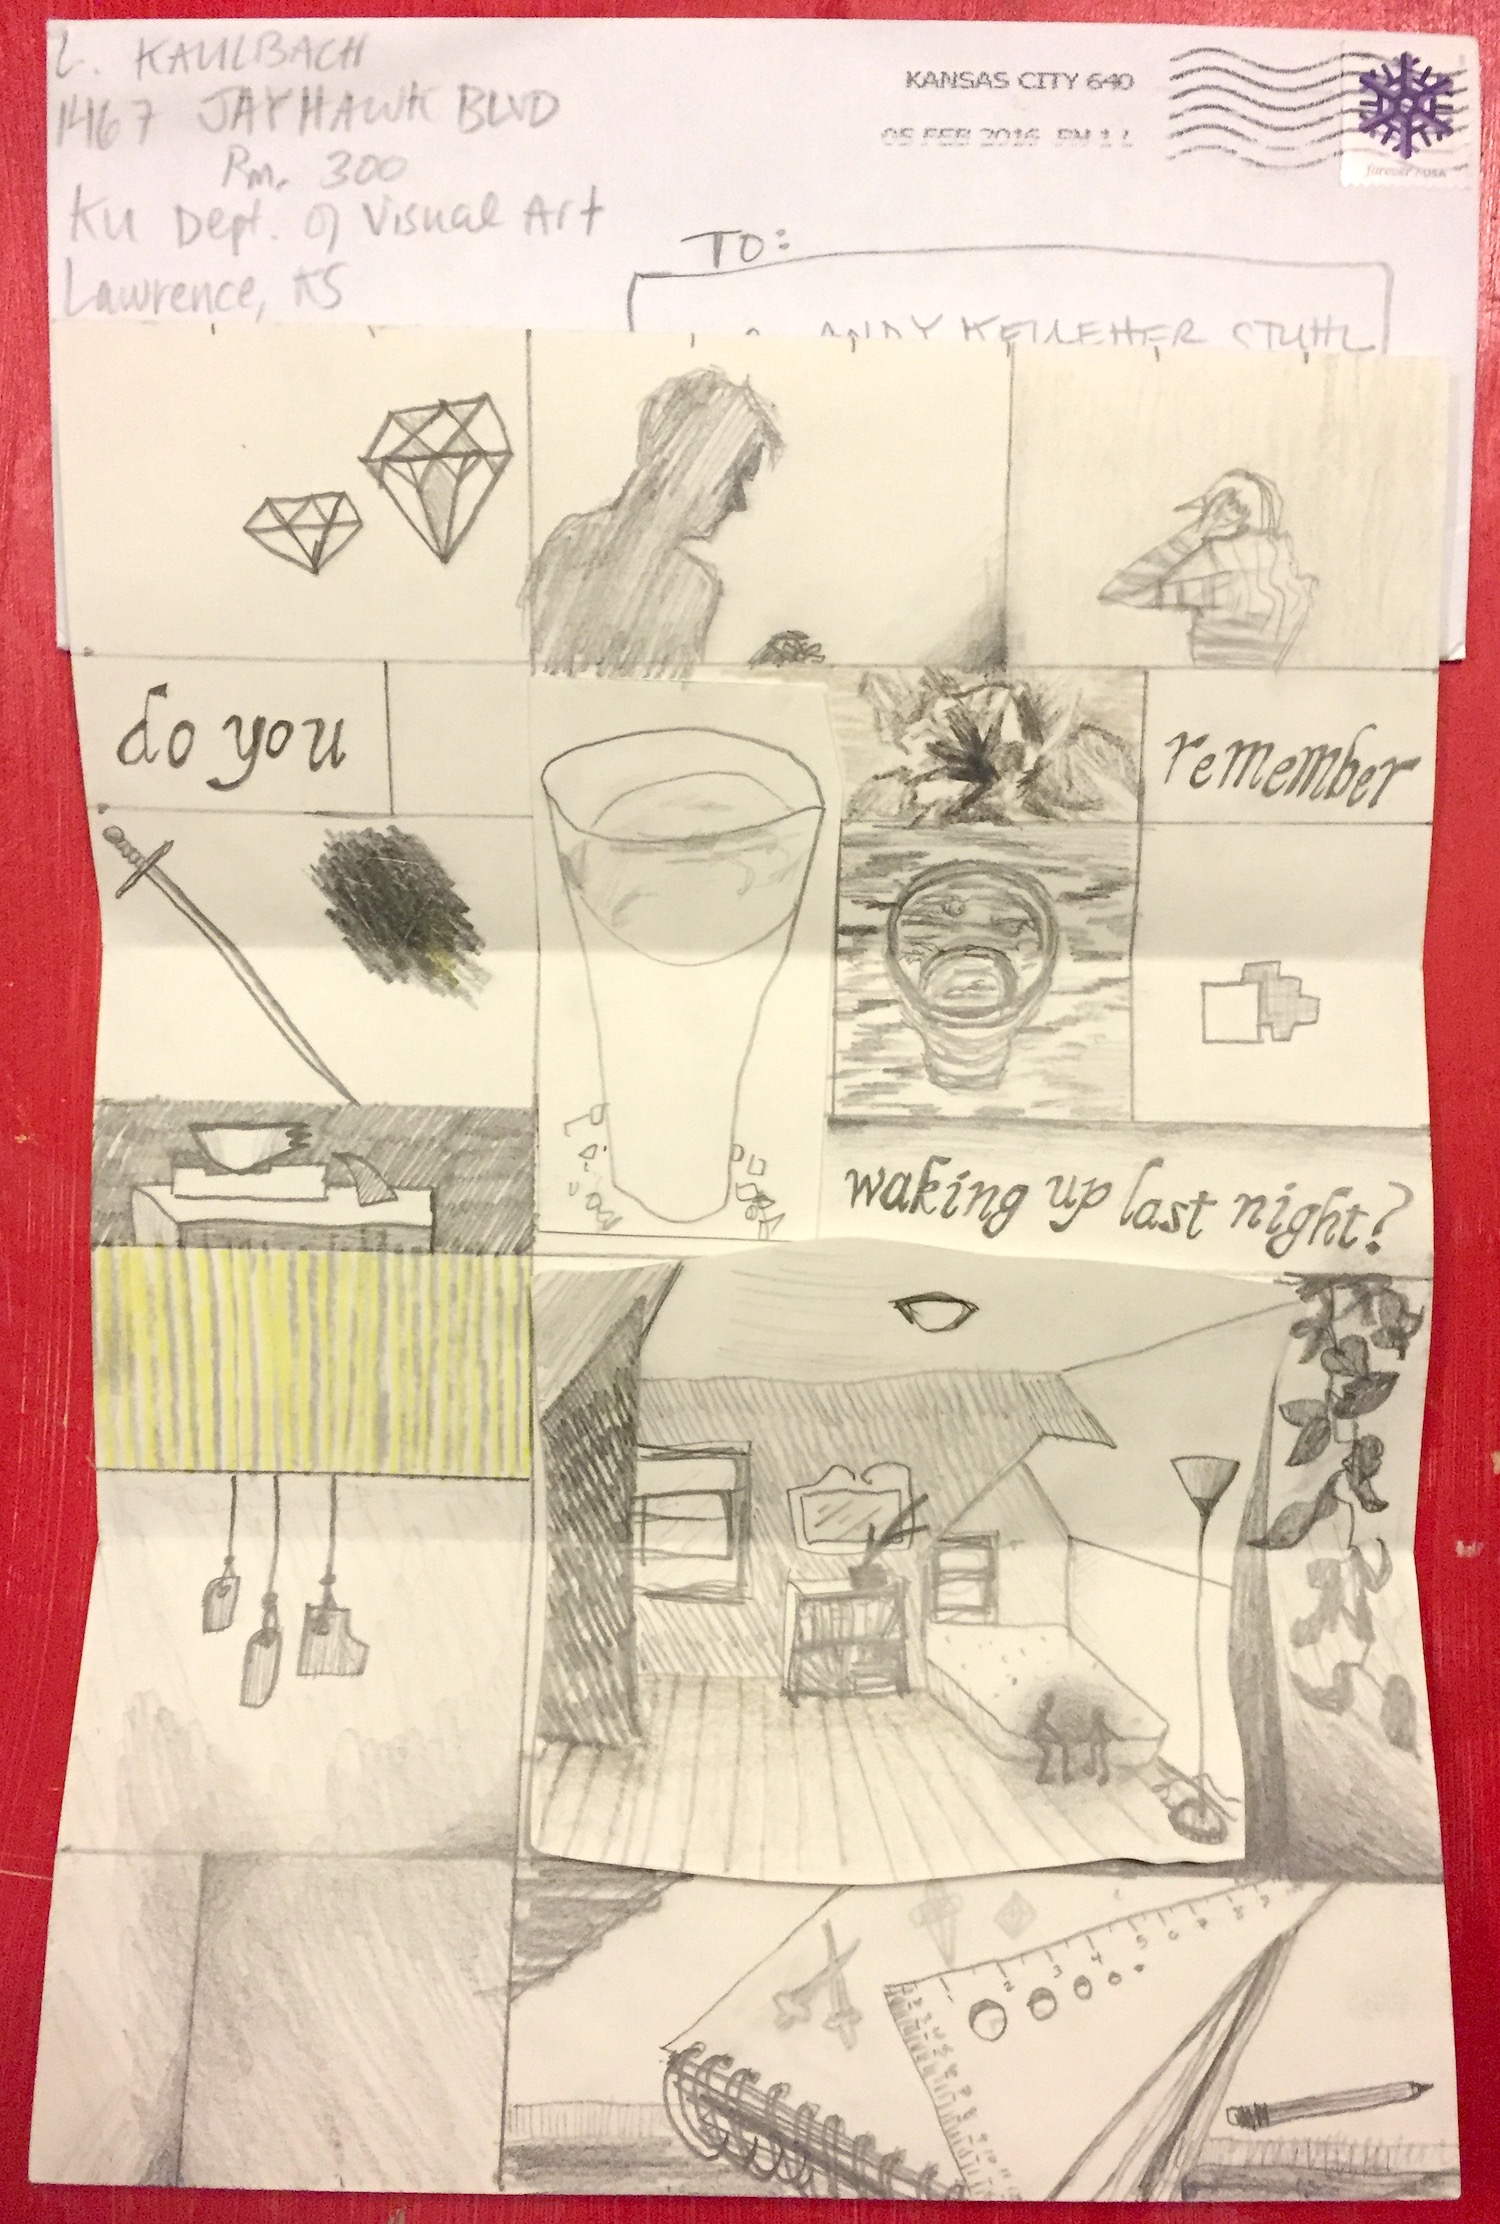 L. KAULBACH
1467 JAYHAWK BLVD
Rm. 300
KU Dept. of Visual Art
Lawrence, KS
KANSAS CITY 640
05 FEB 2016 PM 1 L
forever / USA
TO:
ANDY KELLEHER STUHL
do you
remember
waking up last night?
1 2 3 4 5 6 7 8